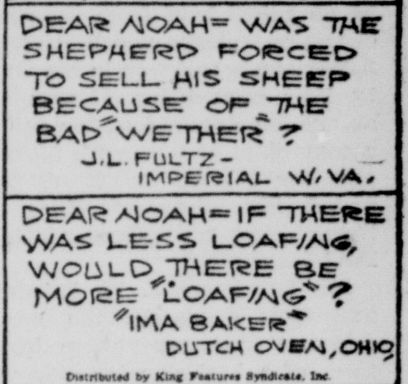 DEAR NOAH= WAS THE
SHEPHERD FORCED
TO SELL HIS SHEEP
BECAUSE OF THE
BAD "WETHER"?
J.L. FULTZ-
IMPERIAL W.VA.
DEAR NOAH= IF THERE
WAS LESS LOAFING,
WOULD THERE BE
MORE "LOAFING"?
"IMA BAKER"
DUTCH OVEN, OHIO
Distributed by King Features Syndicate, Inc.